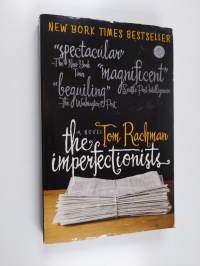 NEW YORK TIMES BESTSELLER
"spectacular"
-The New York Times
"magnificent"
-Seattle Post-Intelligencer
"beguiling"
-The Washington Post
a novel
Tom Rachman
the
imperfectionists